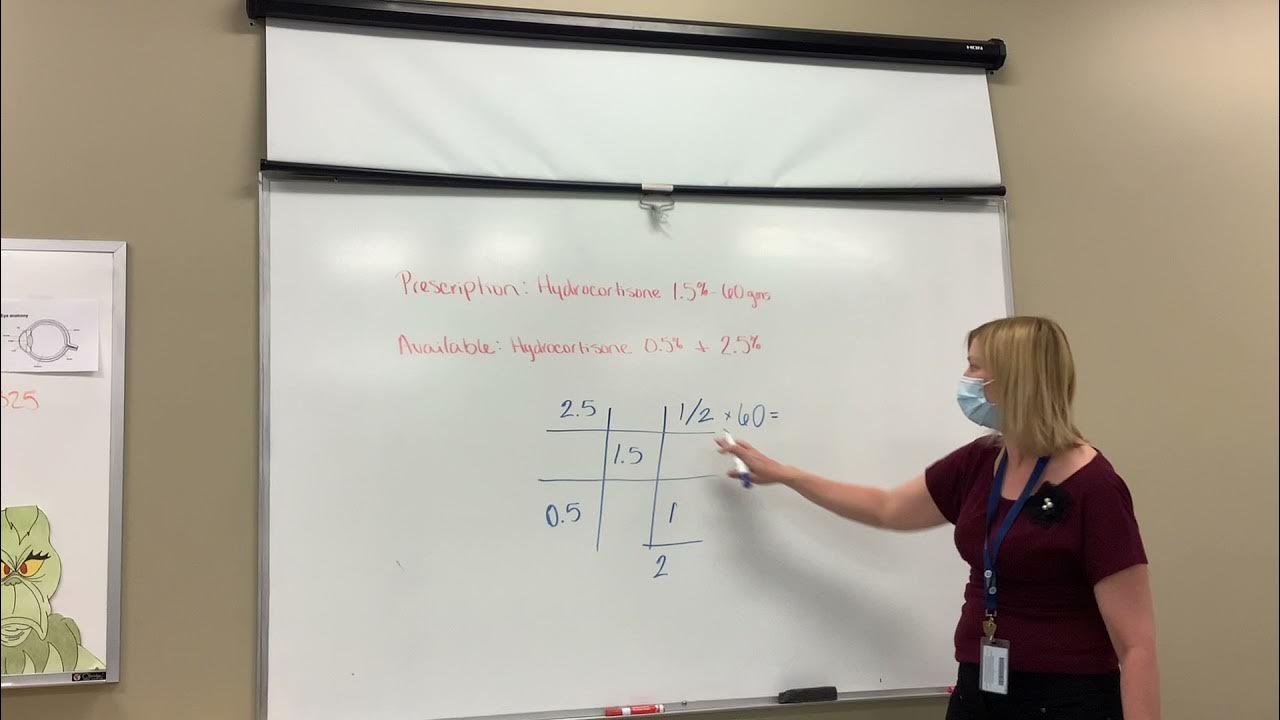 HDN
Prescription: Hydrocortisone 1.5% - 60gms
Available: Hydrocortisone 0.5% + 2.5%
Eye anatomy
525
2.5 1/2 × 60 =
1.5
0.5 1
2